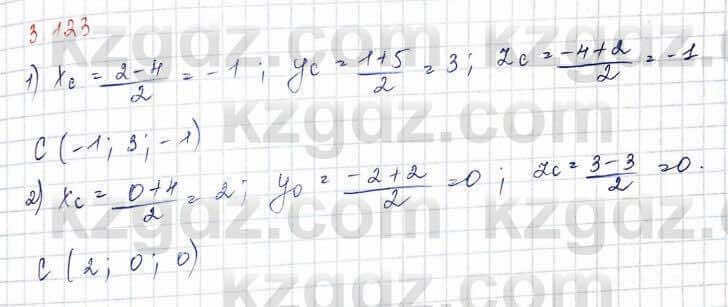 3 123
1) x_c = \frac{2-4}{2} = -1 ; y_c = \frac{1+5}{2} = 3 ; z_c = \frac{-4+2}{2} = -1
C (-1 ; 3 ; -1)
2) x_c = \frac{0+4}{2} = 2 ; y_0 = \frac{-2+2}{2} = 0 ; z_c = \frac{3-3}{2} = 0.
C (2 ; 0 ; 0)
kzgdz.com kzgdz.com
kzgdz.com kzgdz.com
kzgdz.com kzgdz.com